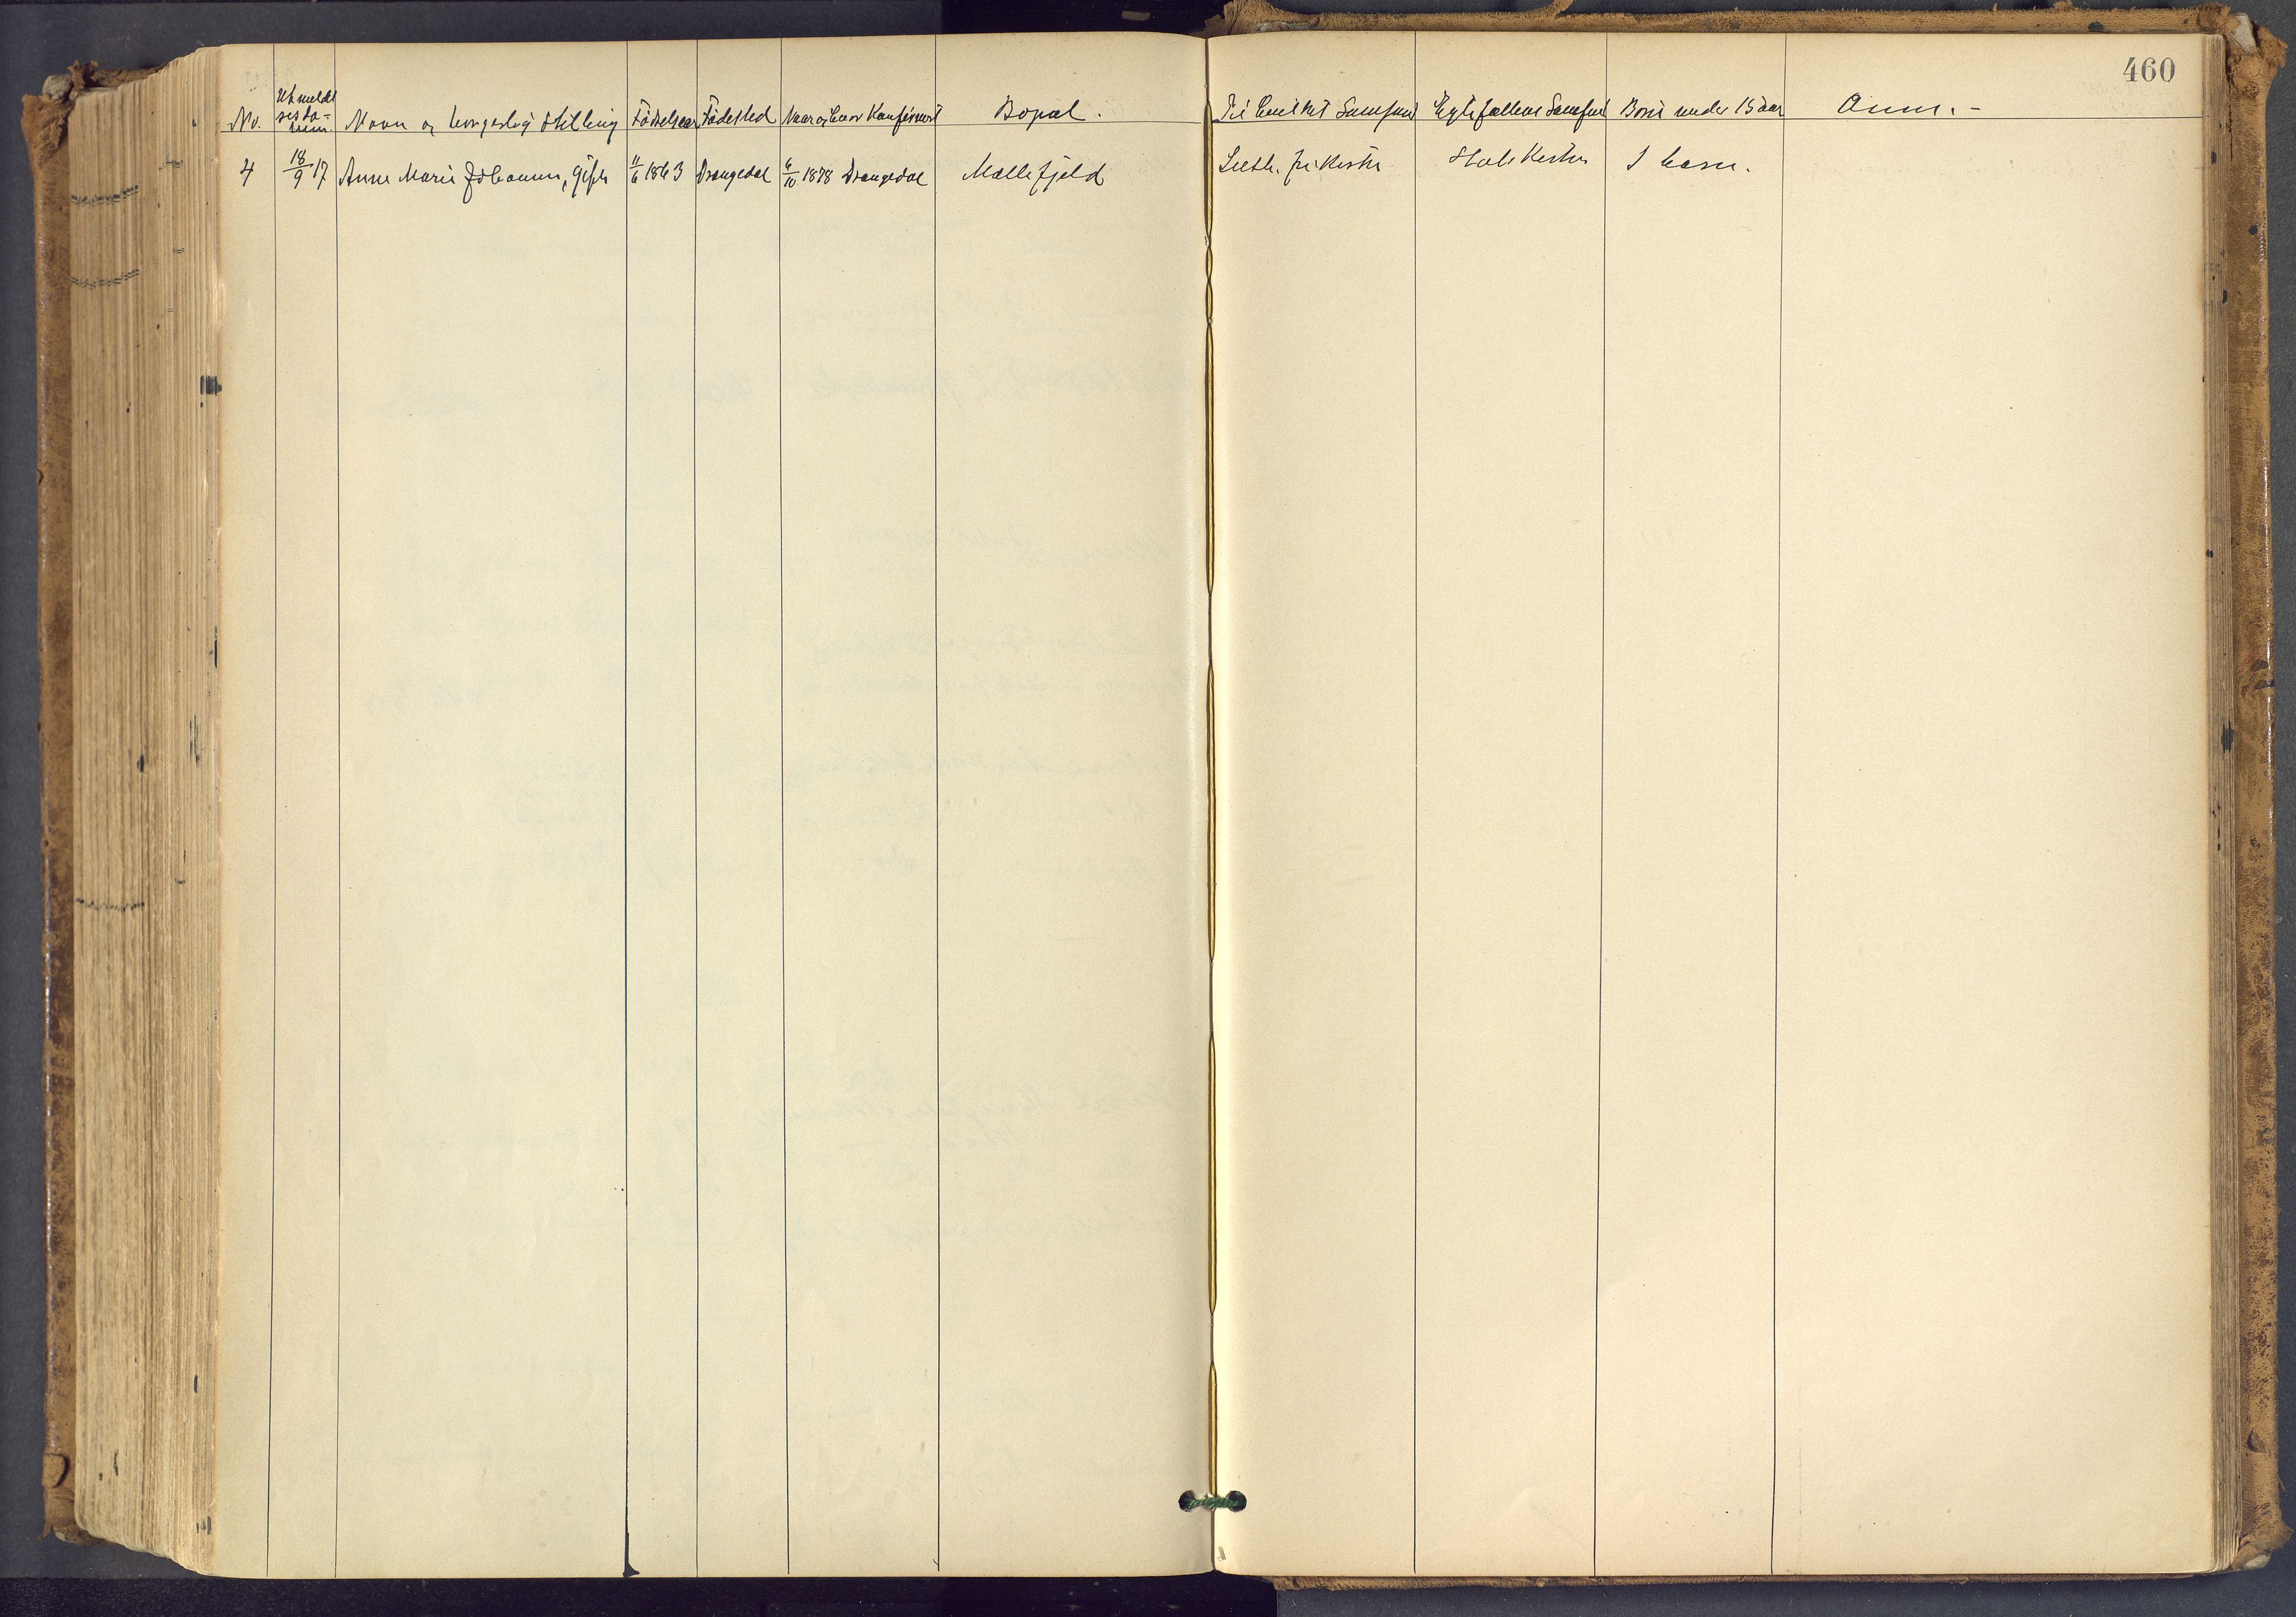 460
No. Utmeldelsesdatum. Navn og borgerlig Stilling Födselsaar Födested Naar og hvor Konfirmert Bopæl. Til hvilket Samfund Egtefællens Samfund Barn under 15 aar Anm. -
4 18/9 17 Anne Marie Johansen, gift 11/6 1863 Drangedal 6/10 1878 Drangedal Mællefjeld Luth. frikirke Statskirken 1 barn.